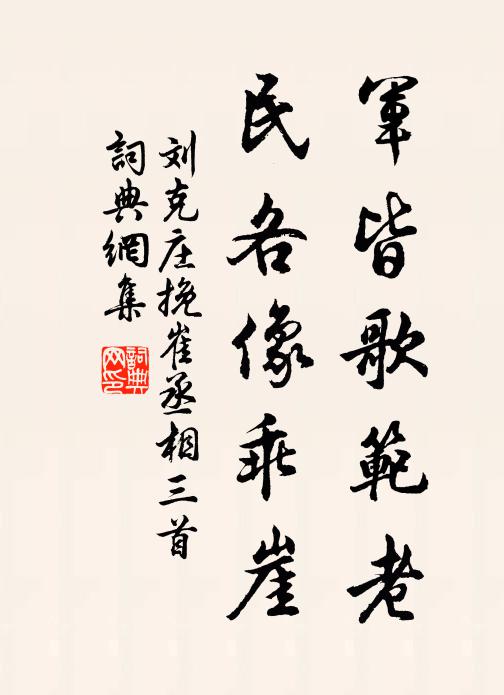 軍皆歌範老
民各像乖崖
刘克庄挽崔丞相三首
詞典網集
詞典网印